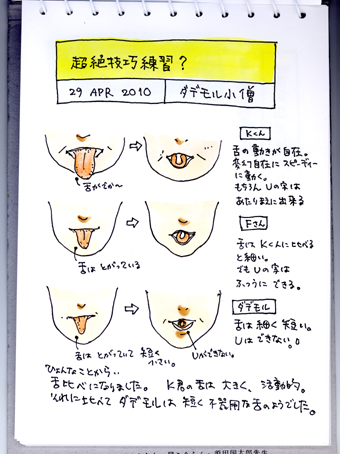 超絶技巧練習?
29 APR 2010
ダデモル小僧
Kくん
舌の動きが自在。
変幻自在にスピーディー
に動く。
もちろん Uの字は
あたりまえに出来る
舌がでか〜
Fさん
舌は Kくんに比べる
と細い。
でも Uの字は
ふつうに できる。
舌は とがっている
ダデモル
舌は細く 短い。
Uはできない。
舌は とがっていて 短く
小さい。
Uができない。
ひょんなことから‥
舌比べになりました。 K君の舌は 大きく、活動的。
それに比べて ダデモルは 短く 不器用な舌のようでした。